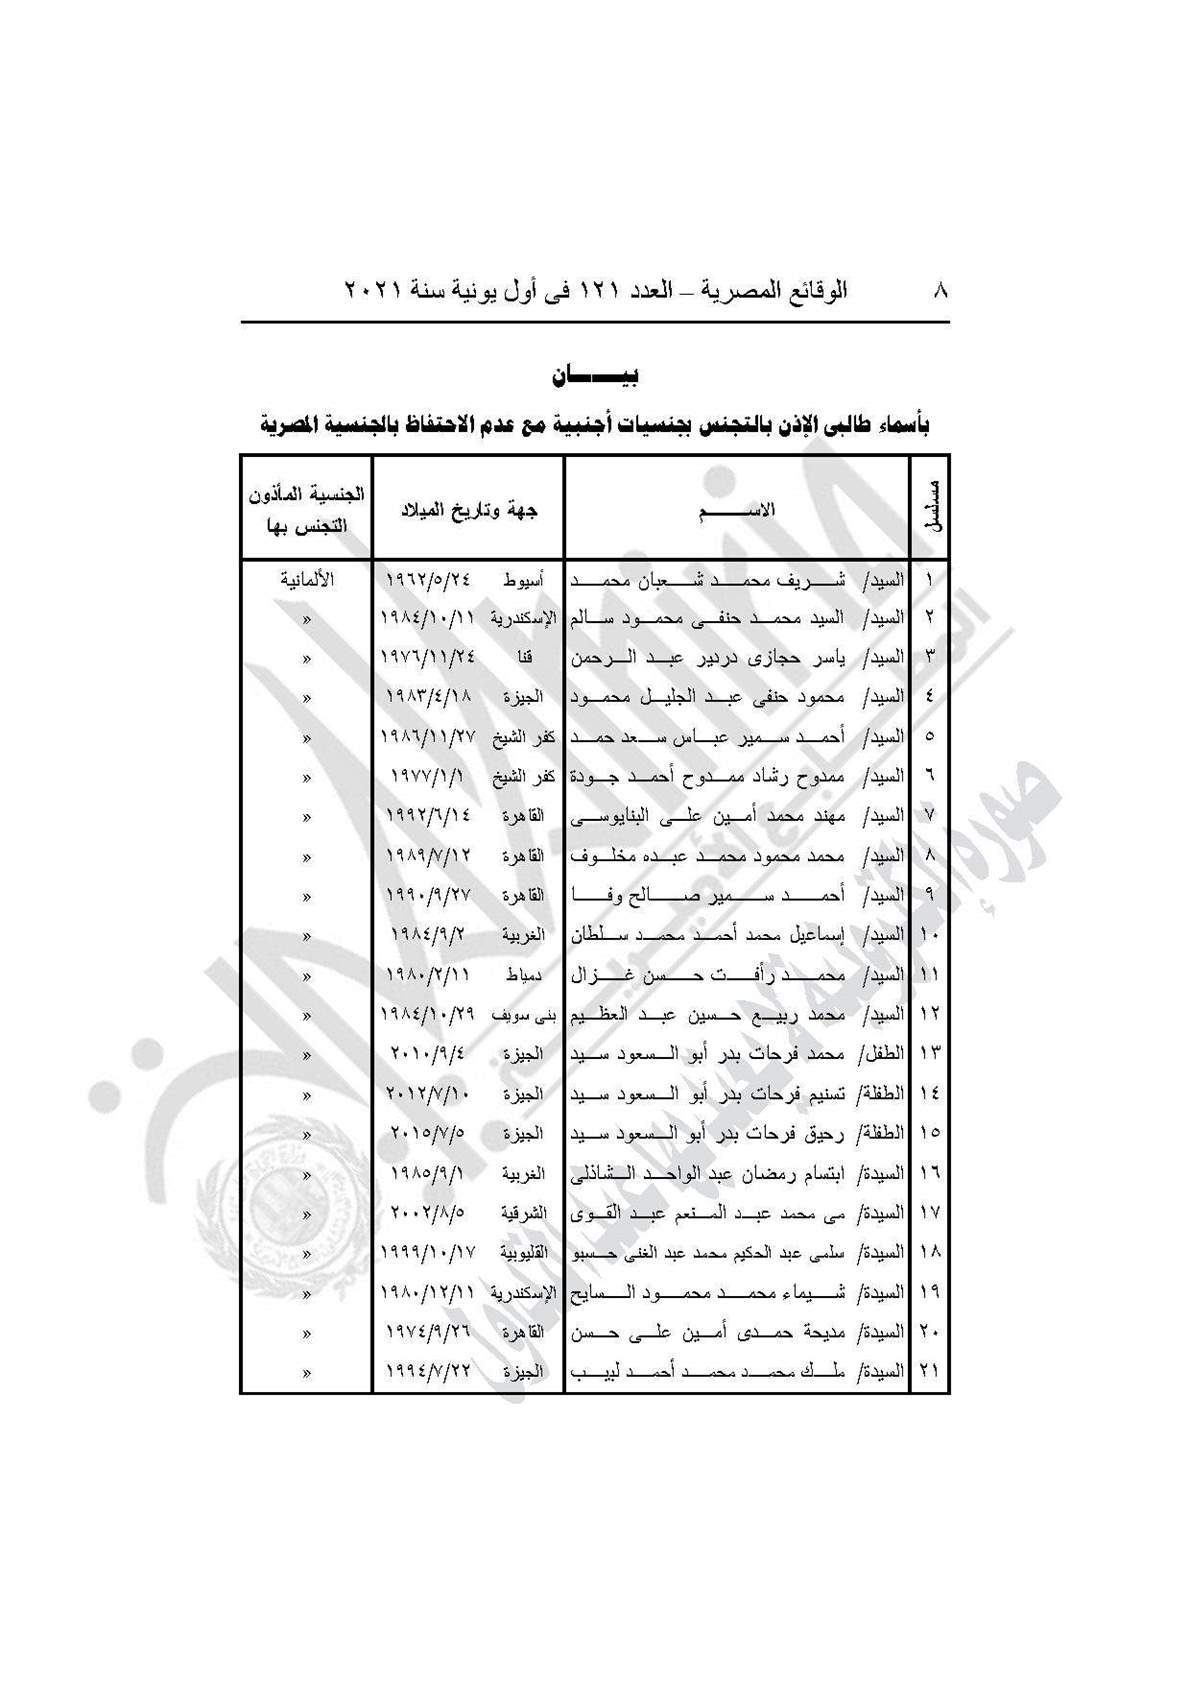 ٨ الوقائع المصرية – العدد ١٢١ فى أول يونية سنة ٢٠٢١
بيـــــان
بأسماء طالبى الإذن بالتجنس بجنسيات أجنبية مع عدم الاحتفاظ بالجنسية المصرية
مسلسل الاســـــم جهة وتاريخ الميلاد الجنسية المأذون التجنس بها
١ السيد/ شريف محمد شعبان محمد أسيوط ١٩٦٢/٥/٢٤ الألمانية
٢ السيد/ السيد محمد حنفى محمود سالم الإسكندرية ١٩٨٤/١٠/١١ »
٣ السيد/ ياسر حجازى دردير عبد الرحمن قنا ١٩٧٦/١١/٢٤ »
٤ السيد/ محمود حنفى عبد الجليل محمود الجيزة ١٩٨٣/٤/١٨ »
٥ السيد/ أحمد سمير عباس سعد حمد كفر الشيخ ١٩٨٦/١١/٢٧ »
٦ السيد/ ممدوح رشاد ممدوح أحمد جودة كفر الشيخ ١٩٧٧/١/١ »
٧ السيد/ مهند محمد أمين على البنايوسى القاهرة ١٩٩٢/٦/١٤ »
٨ السيد/ محمد محمود محمد عبده مخلوف القاهرة ١٩٨٩/٧/١٢ »
٩ السيد/ أحمد سمير صالح وفا القاهرة ١٩٩٠/٩/٢٧ »
١٠ السيد/ إسماعيل محمد أحمد محمد سلطان الغربية ١٩٨٤/٩/٢ »
١١ السيد/ محمد رأفت حسن غزال دمياط ١٩٨٠/٢/١١ »
١٢ السيد/ محمد ربيع حسين عبد العظيم بنى سويف ١٩٨٤/١٠/٢٩ »
١٣ الطفل/ محمد فرحات بدر أبو السعود سيد الجيزة ٢٠١٠/٩/٤ »
١٤ الطفلة/ تسنيم فرحات بدر أبو السعود سيد الجيزة ٢٠١٢/٧/١٠ »
١٥ الطفلة/ رحيق فرحات بدر أبو السعود سيد الجيزة ٢٠١٥/٧/٥ »
١٦ السيدة/ ابتسام رمضان عبد الواحد الشاذلى الغربية ١٩٨٥/٩/١ »
١٧ السيدة/ مى محمد عبد المنعم عبد القوى الشرقية ٢٠٠٢/٨/٥ »
١٨ السيدة/ سلمى عبد الحكيم محمد عبد الغنى حسبو القليوبية ١٩٩٩/١٠/١٧ »
١٩ السيدة/ شيماء محمد محمود السايح الإسكندرية ١٩٨٠/١٢/١١ »
٢٠ السيدة/ مديحة حمدى أمين على حسن القاهرة ١٩٧٤/٩/٢٦ »
٢١ السيدة/ ملك محمد محمد أحمد لبيب الجيزة ١٩٩٤/٧/٢٢ »